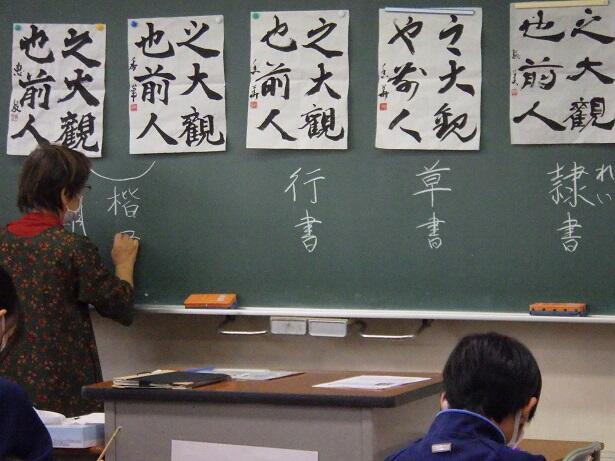 之大觀
也前人
之大觀
也前人
之大觀
也前人
之大觀
也前人
之大觀
也前人
れい
隷書
草書
行書
楷